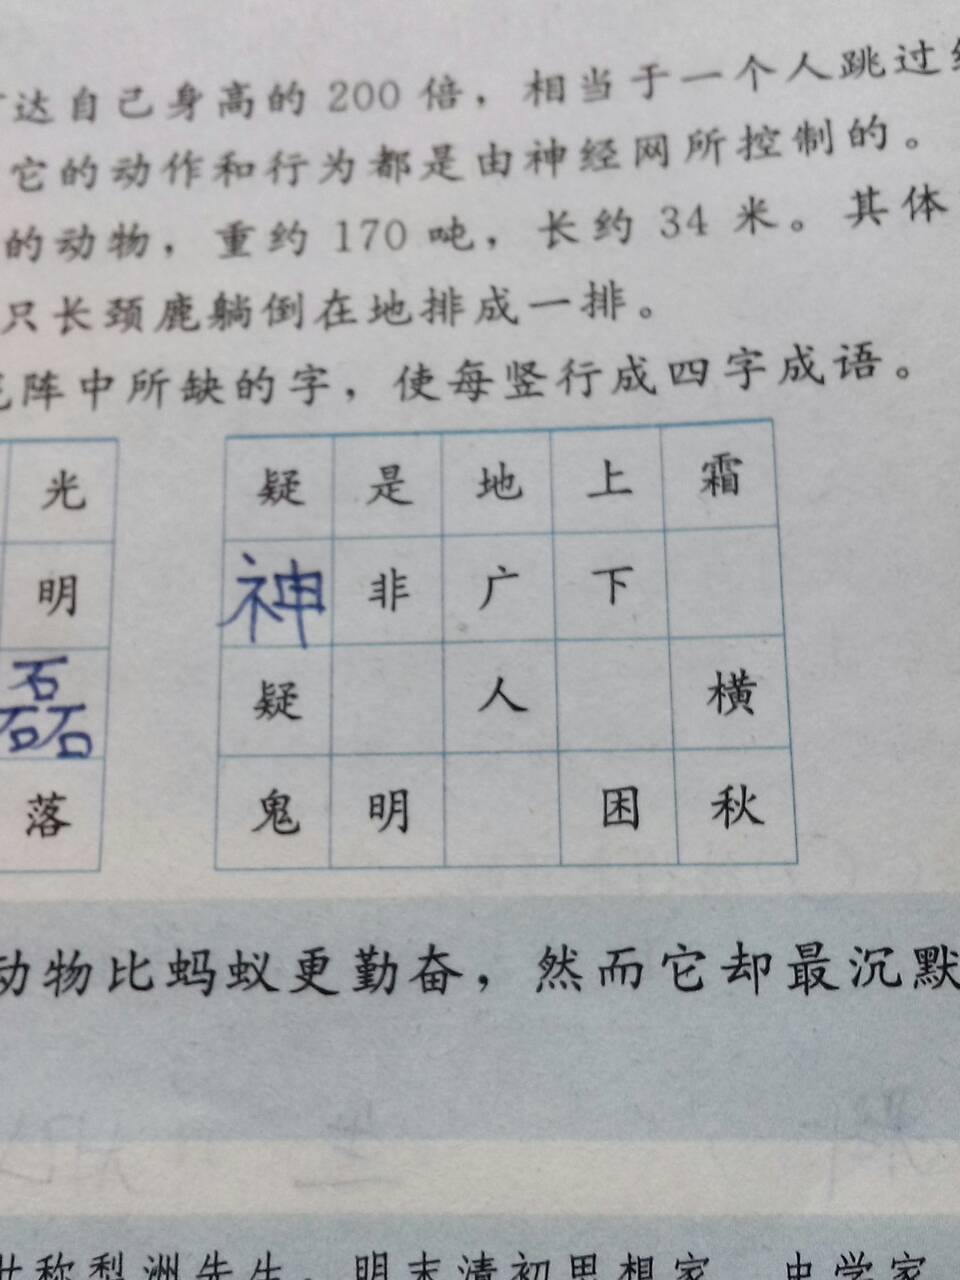 达自己身高的 200 倍，相当于一个人跳过
它的动作和行为都是由神经网所控制的。
的动物，重约 170 吨，长约 34 米。其体
只长颈鹿躺倒在地排成一排。
阵中所缺的字，使每竖行成四字成语。
光 疑 是 地 上 霜
明 神 非 广 下
磊 疑 人 横
落 鬼 明 困 秋
动物比蚂蚁更勤奋，然而它却最沉默
世称梨洲先生。明末清初思想家、史学家